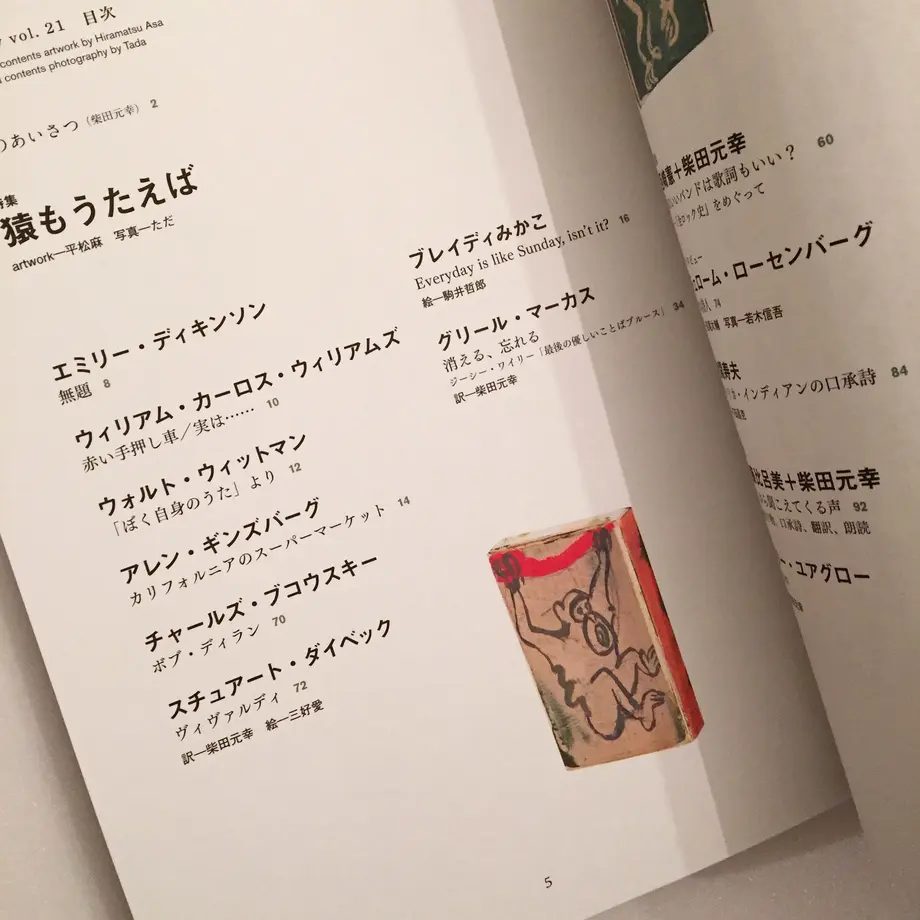 vol. 21 目次
contents artwork by Hiramatsu Asa
contents photography by Tada
のあいさつ（柴田元幸） 2
特集
猿もうたえば
artwork—平松麻 写真—ただ
エミリー・ディキンソン
無題 8
ウィリアム・カーロス・ウィリアムズ
赤い手押し車／実は…… 10
ウォルト・ウィットマン
「ぼく自身のうた」より 12
アレン・ギンズバーグ
カリフォルニアのスーパーマーケット 14
チャールズ・ブコウスキー
ボブ・ディラン 70
スチュアート・ダイベック
ヴィヴァルディ 72
訳—柴田元幸 絵—三好愛
ブレイディみかこ
Everyday is like Sunday, isn't it? 16
絵—駒井哲郎
グリール・マーカス
消える、忘れる
ジーシー・ワイリー「最後の優しいことばブルース」 34
訳—柴田元幸
5
＋柴田元幸
いいバンドは歌詞もいい？ 60
ロック史』をめぐって
ビュー
ェローム・ローセンバーグ
人 74
写真—若木信吾
寿夫
・インディアンの口承詩 84
比呂美＋柴田元幸
ら聞こえてくる声 92
、口承詩、翻訳、朗読
ー・ユアグロー